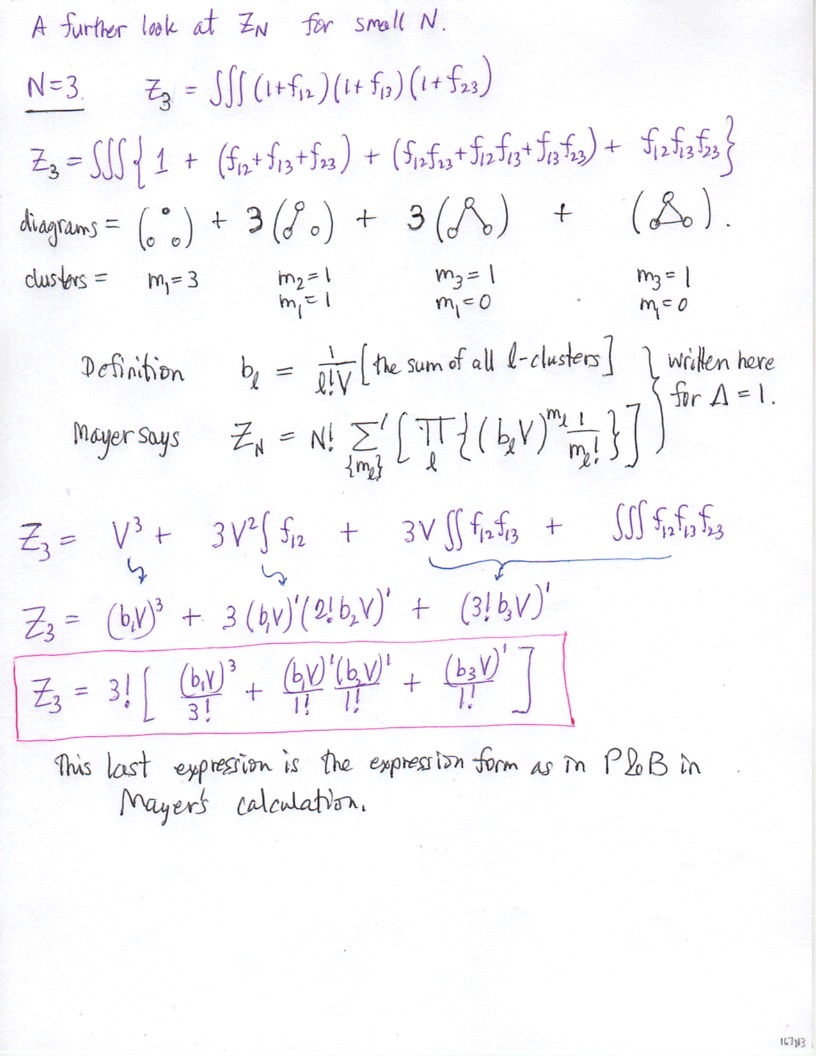 A further look at Z_N for small N.
N=3. Z_3 = ∫∫∫ (1+f_12)(1+f_13)(1+f_23)
Z_3 = ∫∫∫ { 1 + (f_12+f_13+f_23) + (f_12f_23+f_12f_13+f_13f_23) + f_12f_13f_23 }
diagrams = ( ) + 3 ( ) + 3 ( ) + ( ).
clusters = m_1=3 m_2=1 m_3=1 m_3=1
m_1=1 m_1=0 m_1=0
Definition b_ℓ = 1/(ℓ!V) [the sum of all ℓ-clusters] } written here
for Λ=1.
Mayer says Z_N = N! Σ'_{m_ℓ} [ ∏_ℓ { (b_ℓV)^{m_ℓ} 1/m_ℓ! } ]
Z_3 = V^3 + 3V^2 ∫ f_12 + 3V ∫∫ f_12f_13 + ∫∫∫ f_12f_13f_23
Z_3 = (b_1V)^3 + 3(b_1V)^1(2!b_2V)^1 + (3!b_3V)^1
Z_3 = 3! [ (b_1V)^3/3! + (b_1V)^1/1! (b_2V)^1/1! + (b_3V)^1/1! ]
This last expression is the expression form as in P&B in
Mayer's calculation.